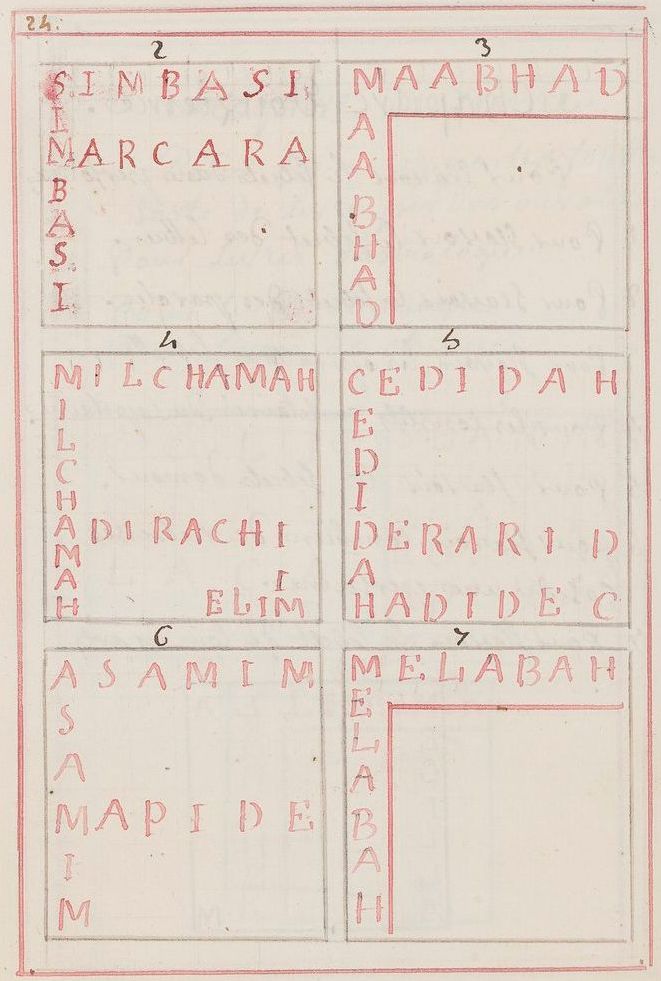 24.
2
SIMBASI
I
MARCARA
B
A
S
I
3
MAABHAD
A
A
B
H
A
D
4
MILCHAMAH
I
L
C
H
ADIRACHI
M
A I
H ELIM
5
CEDIDAH
E
D
I
DERARID
A
HADIDEC
6
ASAMIM
S
A
MAPIDE
I
M
7
MELABAH
E
L
A
B
A
H